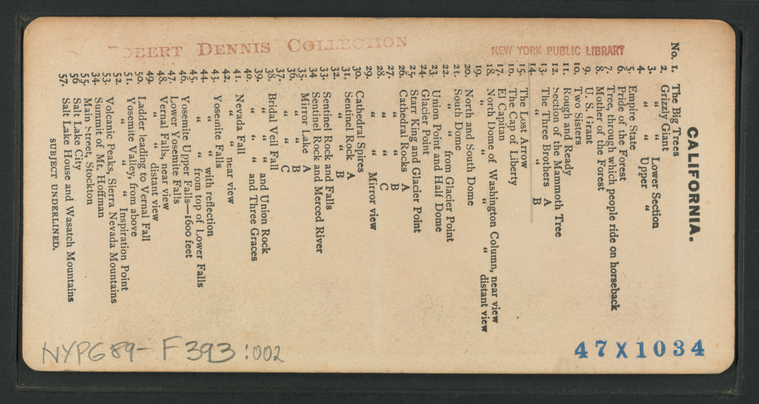 ROBERT DENNIS COLLECTION
NEW YORK PUBLIC LIBRARY
CALIFORNIA.
No. 1. The Big Trees
2. Grizzly Giant
3. " " Lower Section
4. " " Upper "
5. Empire State
6. Pride of the Forest
7. Tree, through which people ride on horseback
8. Mother of the Forest
9. U. S. Grant
10. Two Sisters
11. Rough and Ready
12. Section of the Mammoth Tree
13. The Three Brothers A
14. " " " B
15. The Lost Arrow
16. The Cap of Liberty
17. El Capitan
18. North Dome of Washington Column, near view
19. " " " distant view
20. North and South Dome
21. South Dome
22. " " from Glacier Point
23. Union Point and Half Dome
24. Glacier Point
25. Starr King and Glacier Point
26. Cathedral Rocks A
27. " " B
28. " " C
29. " " Mirror view
30. Cathedral Spires
31. Sentinel Rock A
32. " " B
33. Sentinel Rock and Falls
34. Sentinel Rock and Merced River
35. Mirror Lake A
36. " " B
37. " " C
38. Bridal Veil Fall
39. " " " and Union Rock
40. " " " and Three Graces
41. Nevada Fall
42. " " near view
43. Yosemite Falls
44. " " with reflection
45. " " from top of Lower Falls
46. Yosemite Upper Falls—1600 feet
47. Lower Yosemite Falls
48. Vernal Falls, near view
49. " " distant view
50. Ladder leading to Vernal Fall
51. Yosemite Valley, from above
52. " " Inspiration Point
53. Volcanic Peaks, Sierra Nevada Mountains
54. Summit of Mt. Hoffman
55. Main Street, Stockton
56. Salt Lake City
57. Salt Lake House and Wasatch Mountains
SUBJECT UNDERLINED.
NYPG89-F393:002
47X1034